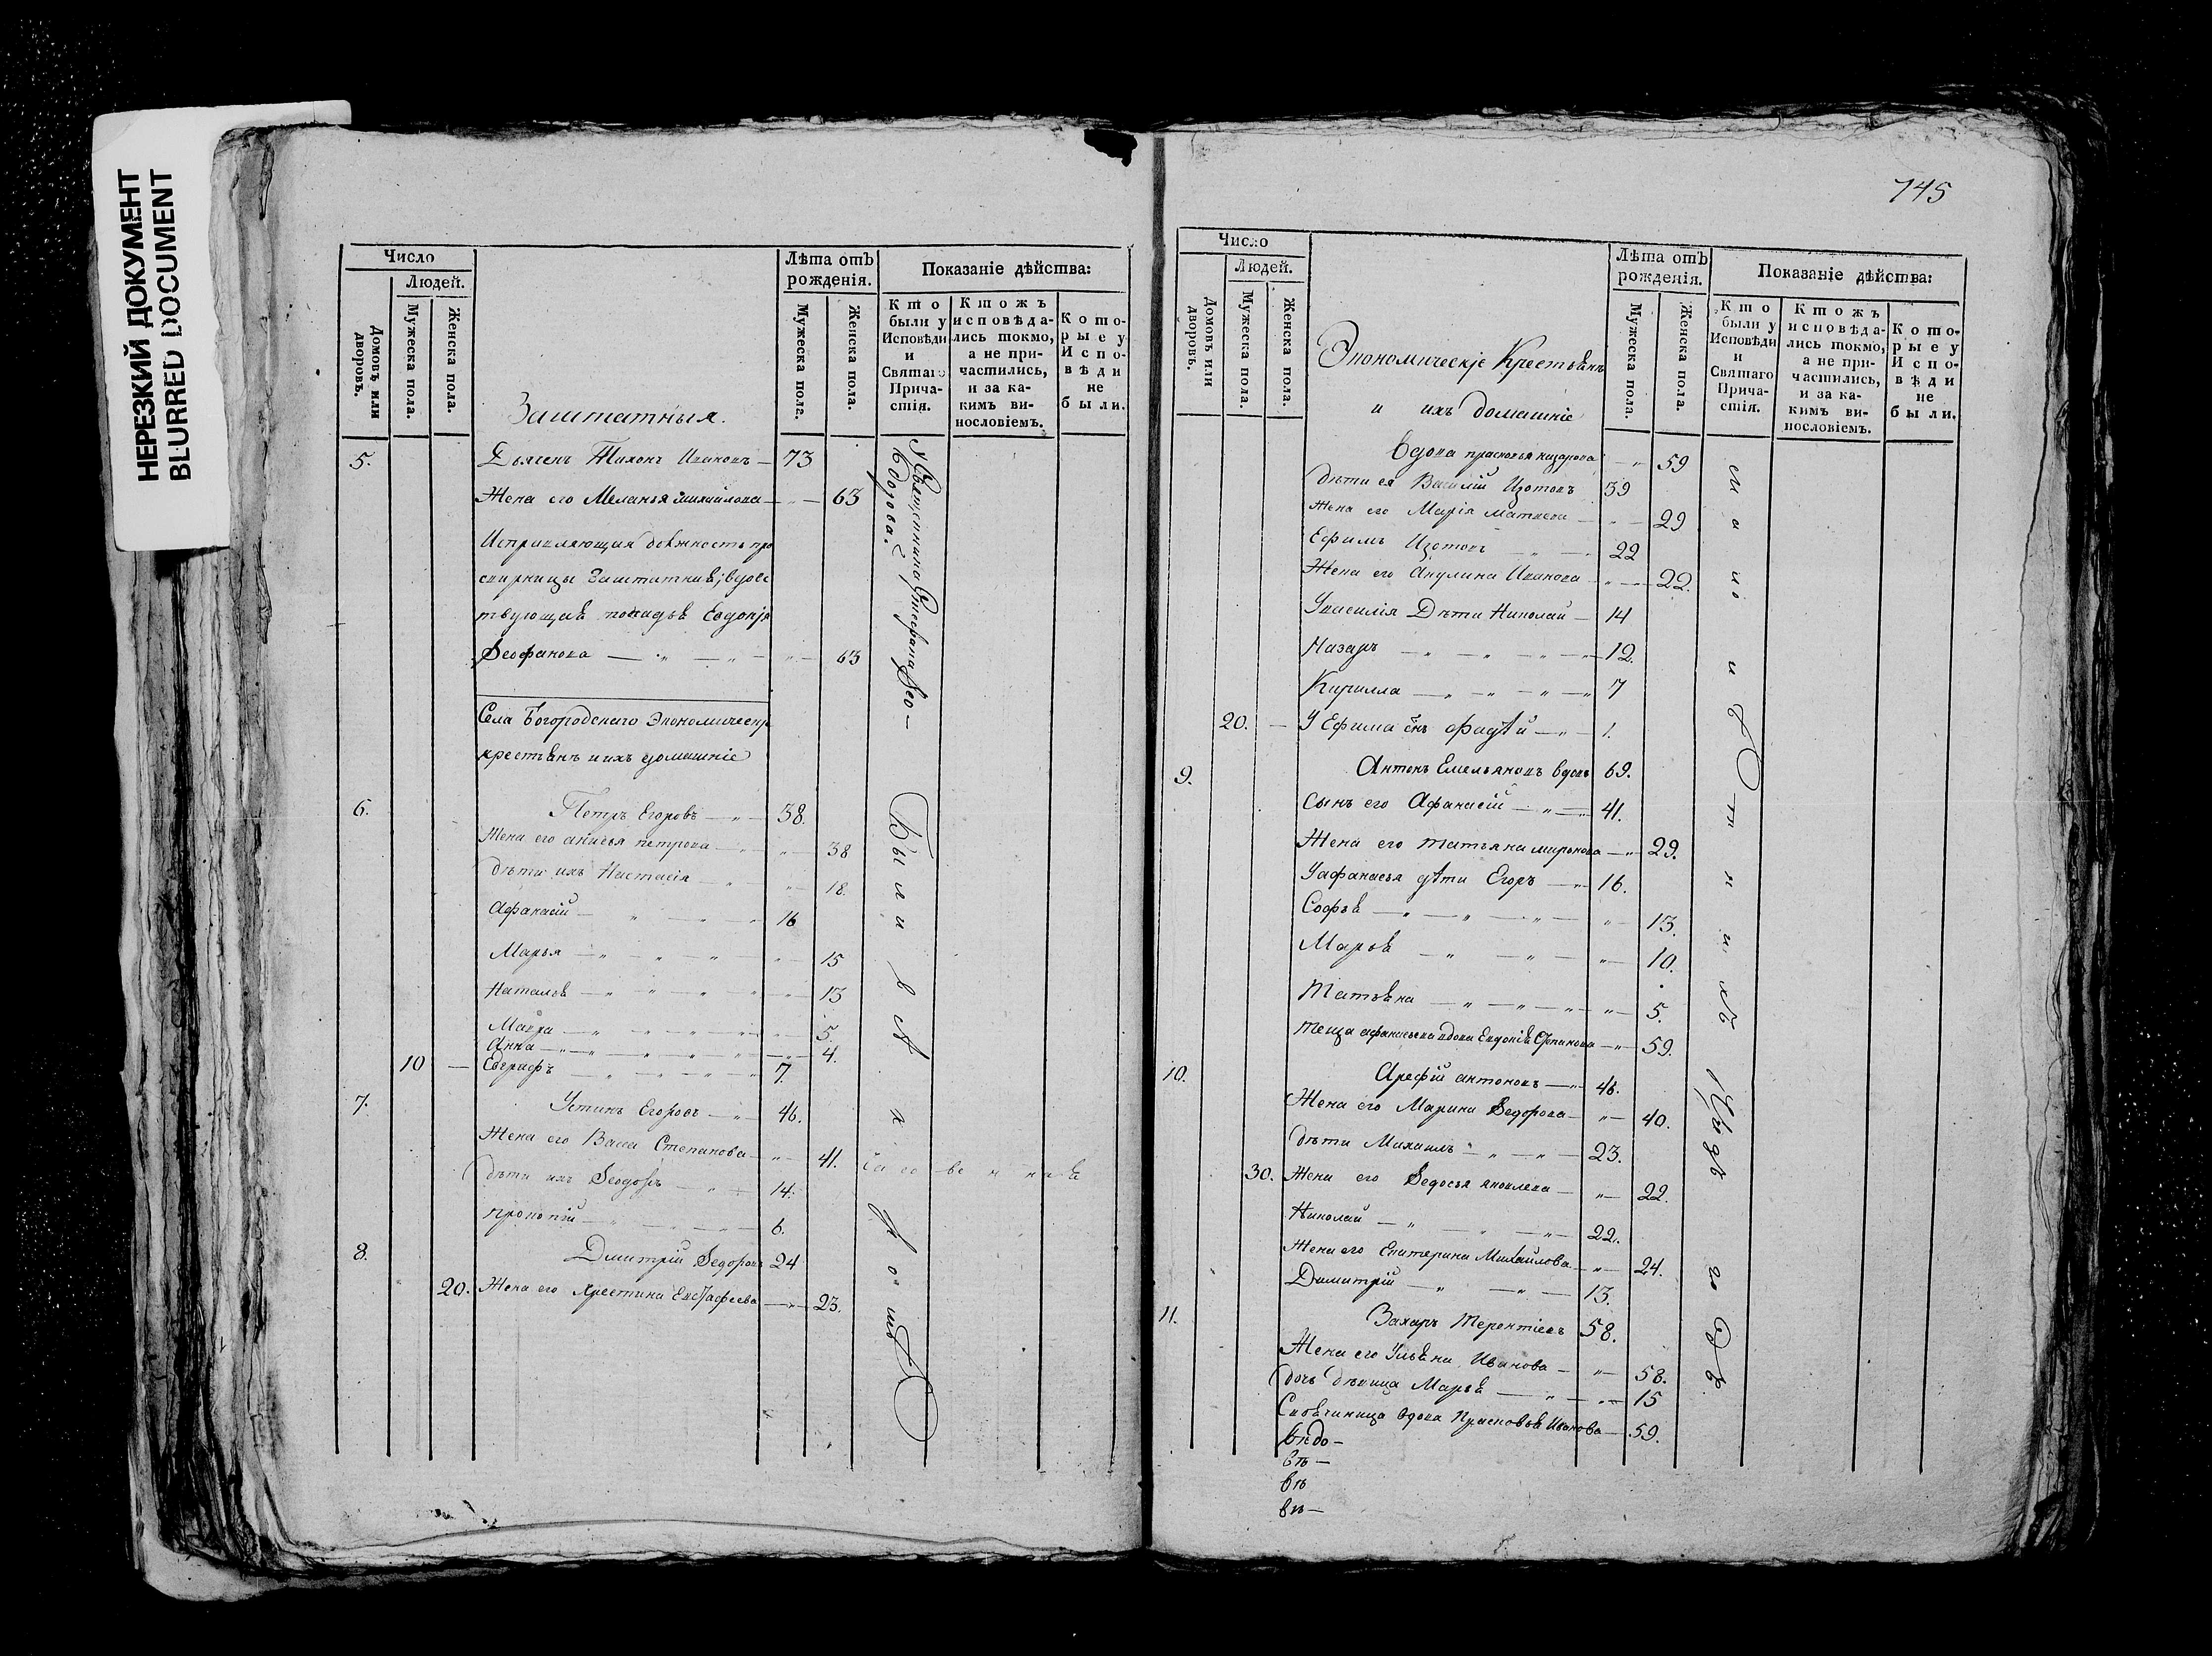 НЕРЕЗКИЙ ДОКУМЕНТ
BLURRED DOCUMENT
Число
Людей.
Домовъ или дворовъ.
Мужеска пола.
Женска пола.
Лѣта отъ рожденія.
Мужеска пола.
Женска пола.
Показаніе дѣйства:
Кто были у Исповѣди и Святаго Причастія.
Ктожъ исповѣдались токмо, а не причастились, и за какимъ винословіемъ.
Которые у Исповѣди не были.
Заштатныя.
5. Дьячекъ Тихонъ Ивановъ — 73
Жена его Меланья Михайлова — 63
Исправляющая должность про
свирницы заштатная вдовс
твующая попадья Евдокія
Ѳеофанова — 63
Села Богородскаго Экономическ
крестьянъ и ихъ домашніе
6. Петръ Егоровъ — 38.
Жена его анисья петрова — 38
дѣти ихъ Настасія — 18.
Афанасій — 16
Марья — 15
Наталья — 13
Мавра — 5.
Анна — 4.
10 — Евграфъ — 7.
7. Устинъ Егоровъ — 46.
Жена его Васса Степанова — 41.
дѣти ихъ Ѳеодоръ — 14.
прокопій — 6.
8. Дмитрій Ѳедоровъ 24
20. Жена его Христина Евстафеева — 23.
Были въ
745
Число
Людей.
Домовъ или дворовъ.
Мужеска пола.
Женска пола.
Экономическіе Крестьянъ
и ихъ домашніе
Лѣта отъ рожденія.
Мужеска пола.
Женска пола.
Показаніе дѣйства:
Кто были у Исповѣди и Святаго Причастія.
Ктожъ исповѣдались токмо, а не причастились, и за какимъ винословіемъ.
Которые у Исповѣди не были.
Вдова прасковья назарова — 59
дѣти ея Василій Изотовъ 39
Жена его Марія Матвеева — 29
Ефимъ Изотовъ — 22
Жена его Акулина Иванова — 22.
У василія Дѣти Николай — 14
Назаръ — 12.
Кирилла — 7
20. — У Ефима сынъ Фадѣй — 1.
9. Антонъ Емельяновъ вдовъ 69.
Сынъ его Афанасій — 41.
Жена его татьяна миронова — 29.
У афанасья дѣти Егоръ — 16.
Софья — 13.
Марья — 10.
Татьяна — 5.
теща афанасьева вдова Евдокія — 59.
10. Арефій антоновъ — 46.
Жена его Марина Ѳедорова — 40.
дѣти Михаилъ — 23.
30. Жена его Ѳедосья яковлева — 22.
Николай — 22.
Жена его Екатерина Михайлова — 24.
Димитрій — 13.
11. Захаръ Терентіевъ 58.
Жена его Ульяна Иванова — 58.
дочь дѣвица Марья — 15
вдова Прасковья Иванова — 59.